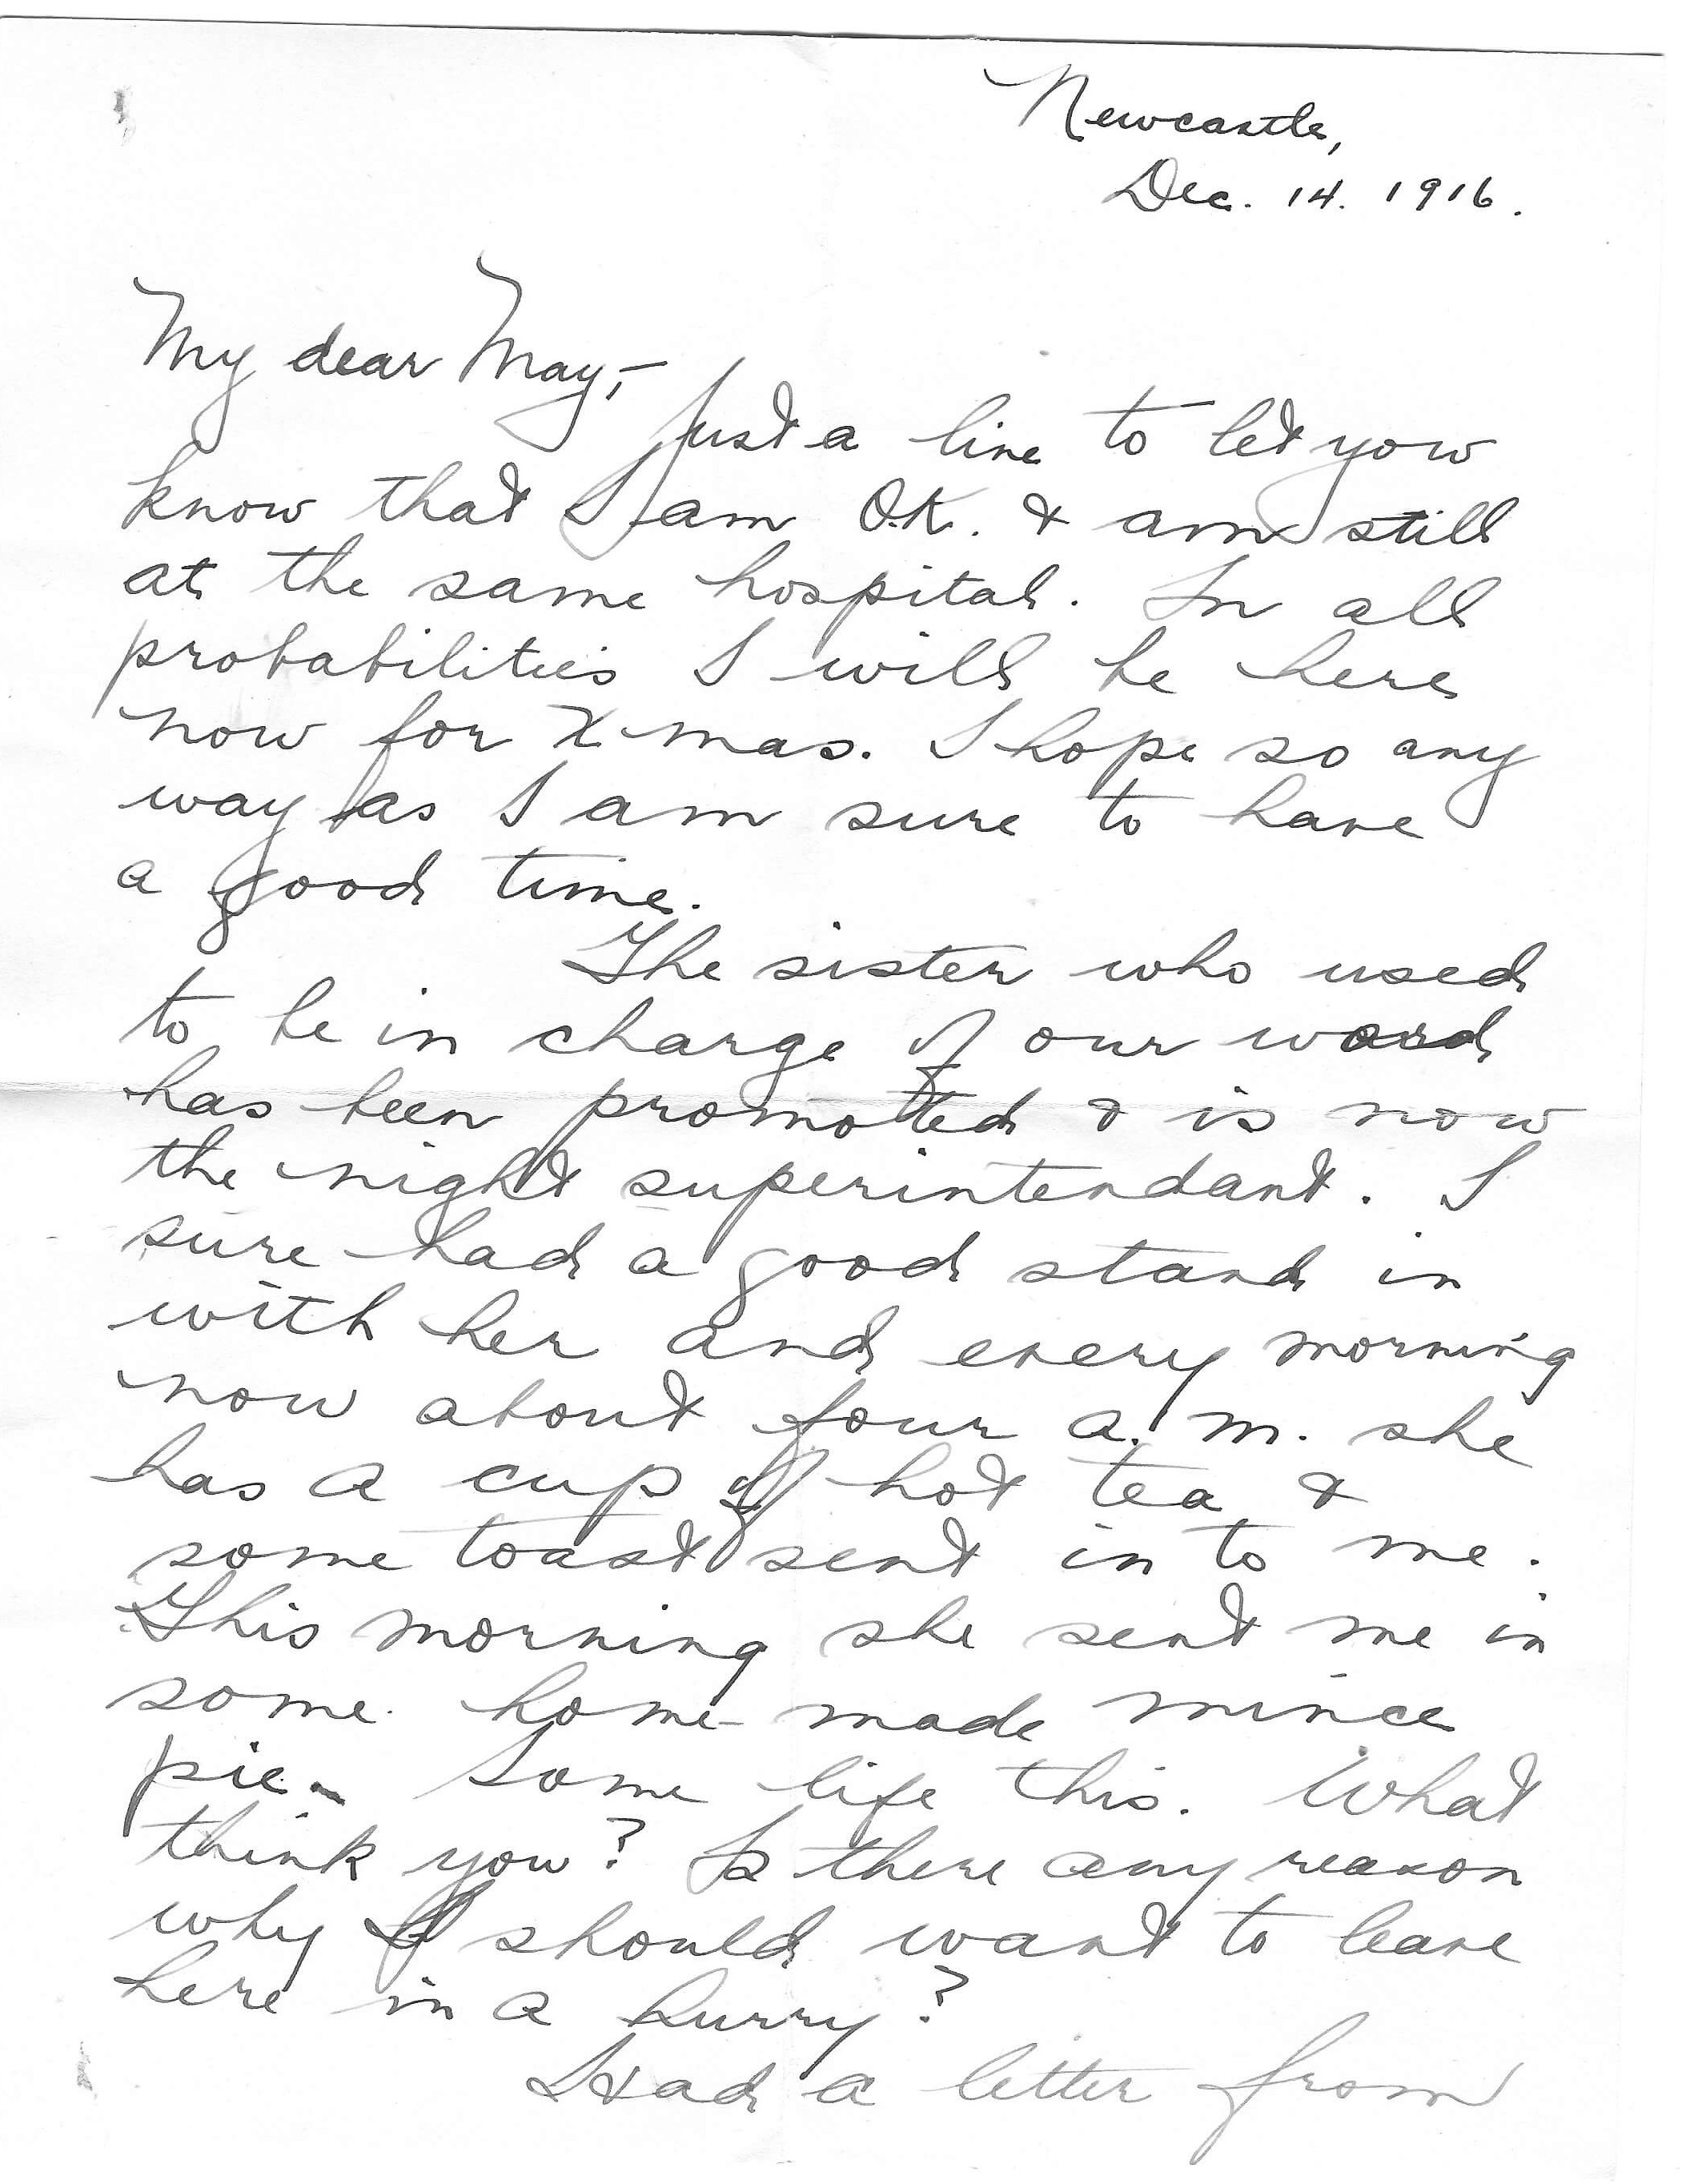 Newcastle,
Dec. 14. 1916.
My dear May,-
Just a line to let you
know that I am O.K. & am still
at the same hospital. In all
probabilities I will be here
now for X mas. I hope so any
way as I am sure to have
a good time.
The sister who used
to be in charge of our ward
has been promoted & is now
the night superintendant. I
sure had a good stand in
with her and every morning
now about four a.m. she
has a cup of hot tea &
some toast sent in to me.
This morning she sent me in
some home-made mince
pie. Some life this. What
think you? Is there any reason
why I should want to leave
here in a hurry?
Had a letter from